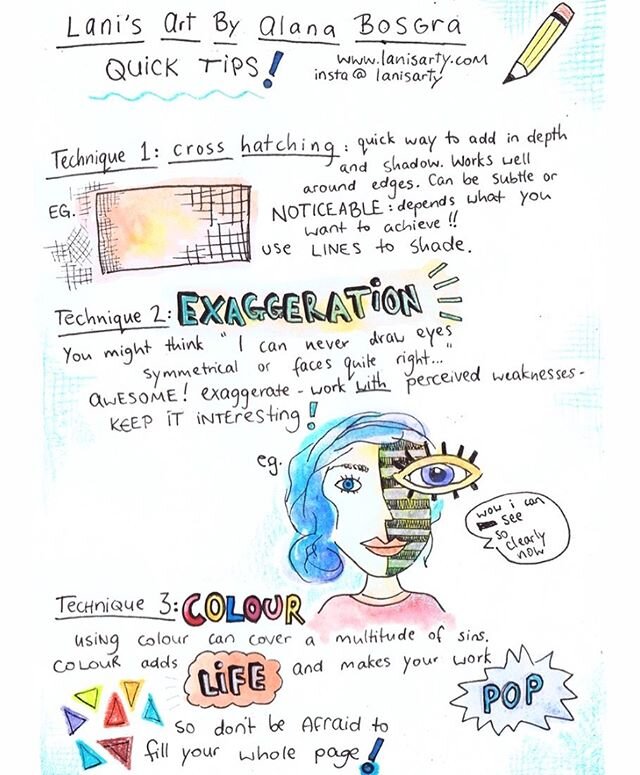 Lani's Art By Alana Bosgra
QUICK TIPS!
www.lanisarty.com
insta@lanisarty
Technique 1: cross hatching: quick way to add in depth
and shadow. Works well
around edges. Can be subtle or
EG.
NOTICEABLE: depends what you
want to achieve!!
use LINES to shade.
Technique 2: EXAGGERATION
You might think "I can never draw eyes
symmetrical or faces quite right..."
AWESOME! exaggerate - work with perceived weaknesses -
KEEP IT INTEresting!
eg.
wow i can
see
so
clearly
now
TECHNIQUE 3: COLOUR
using colour can cover a multitude of sins.
COLOUR adds LiFE and makes your work
POP
so don't be Afraid to
fill your whole page!